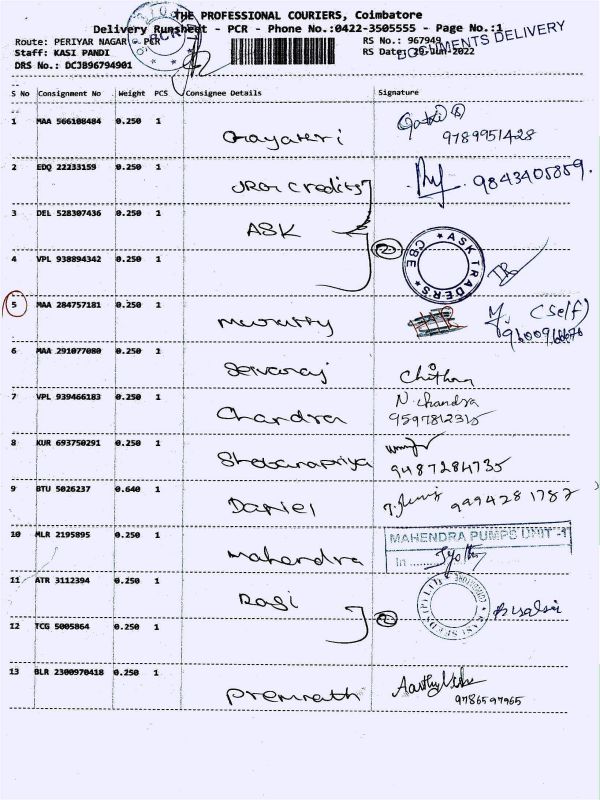 THE PROFESSIONAL COURIERS, Coimbatore
Delivery Runsheet - PCR - Phone No.:0422-3505555 - Page No.:1
DOCUMENTS DELIVERY
Route: PERIYAR NAGAR - PCR
RS No.: 967949
Staff: KASI PANDI
RS Date: 29-Jun-2022
DRS No.: DCJB96794901
S No Consignment No Weight PCS Consignee Details Signature
1 MAA 566108484 0.250 1 Gayatri
9789951428
2 EDQ 22233159 0.250 1 JRGI Credits 9843405859.
3 DEL 528307436 0.250 1 ASK
4 VPL 938894342 0.250 1
ASK TRADERS CBE
5 MAA 284757181 0.250 1 (self)
6 MAA 291077080 0.250 1 Selvaraj
7 VPL 939466183 0.250 1 Chandra N. Chandra
9597812315
8 KUR 693750291 0.250 1 Shobanapriya
9487284735
9 BTU 5026237 0.640 1 Daniel 9994281782
10 MLR 2195895 0.250 1 Mahendra MAHENDRA PUMPS UNIT -1
In Jyothy
11 ATR 3112394 0.250 1 Rasi
12 TCG 5005864 0.250 1
13 BLR 2300970418 0.250 1 Premnath
9786597965